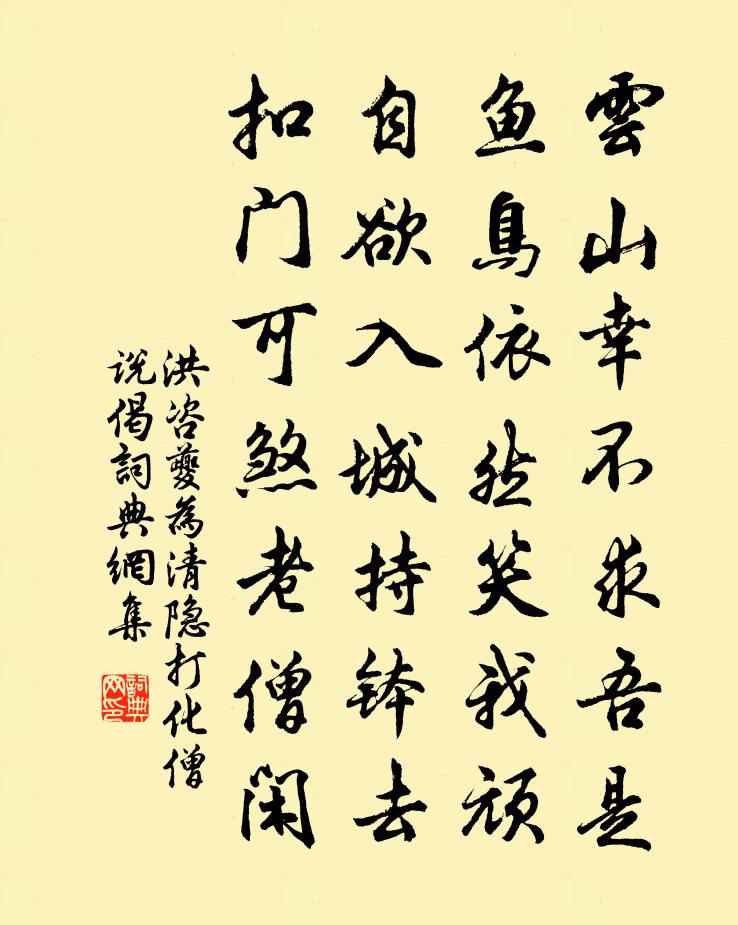 雲山幸不求吾是
鱼鳥依然笑我頑
自欲入城持钵去
扣门可煞老僧闲
洪咨夔為清隐打化僧
说偈詞典網集
詞典
网印